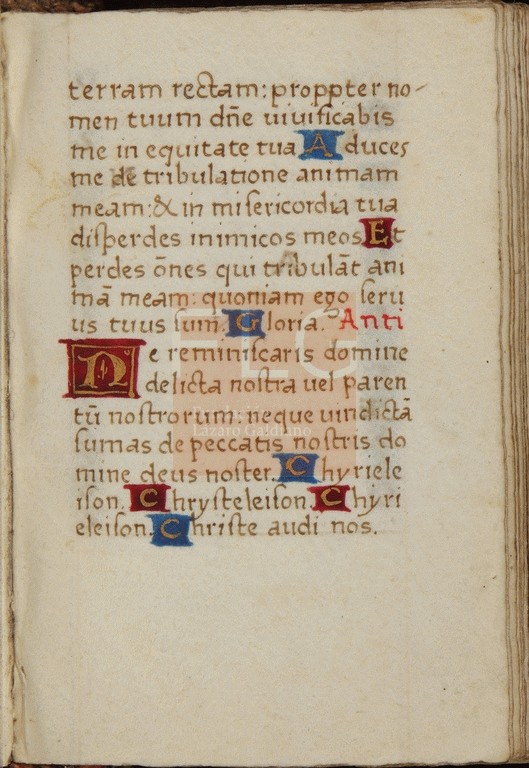 terram rectam: proppter no-
men tuum dñe uiuificabis
me in equitate tua Aduces
me de tribulatione animam
meam: & in misericordia tua
disperdes inimicos meos Et
perdes õnes qui tribulãt ani
mã meam: quoniam ego seru
us tuus sum. Gloria. Anti
Ne reminiscaris domine
delicta nostra uel paren
tũ nostrorum: neque uindictã
sumas de peccatis nostris do
mine deus noster. Chyriele
ison. Chrysteleison. Chyri
eleison. Christe audi nos.
FLG
Lázaro Galdiano